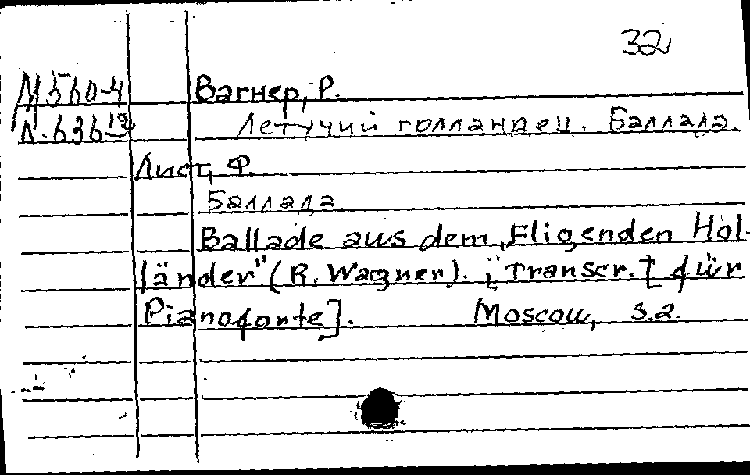 32
М560-4 Вагнер, Р.
Л.636 19 Летучий голландец. Баллада.
Лист, Ф.
Баллада
Ballade aus dem „Fligenden Hol-
länder" (R. Wagner). [Transcr. f für
Pianoforte]. Moscou, s.a.